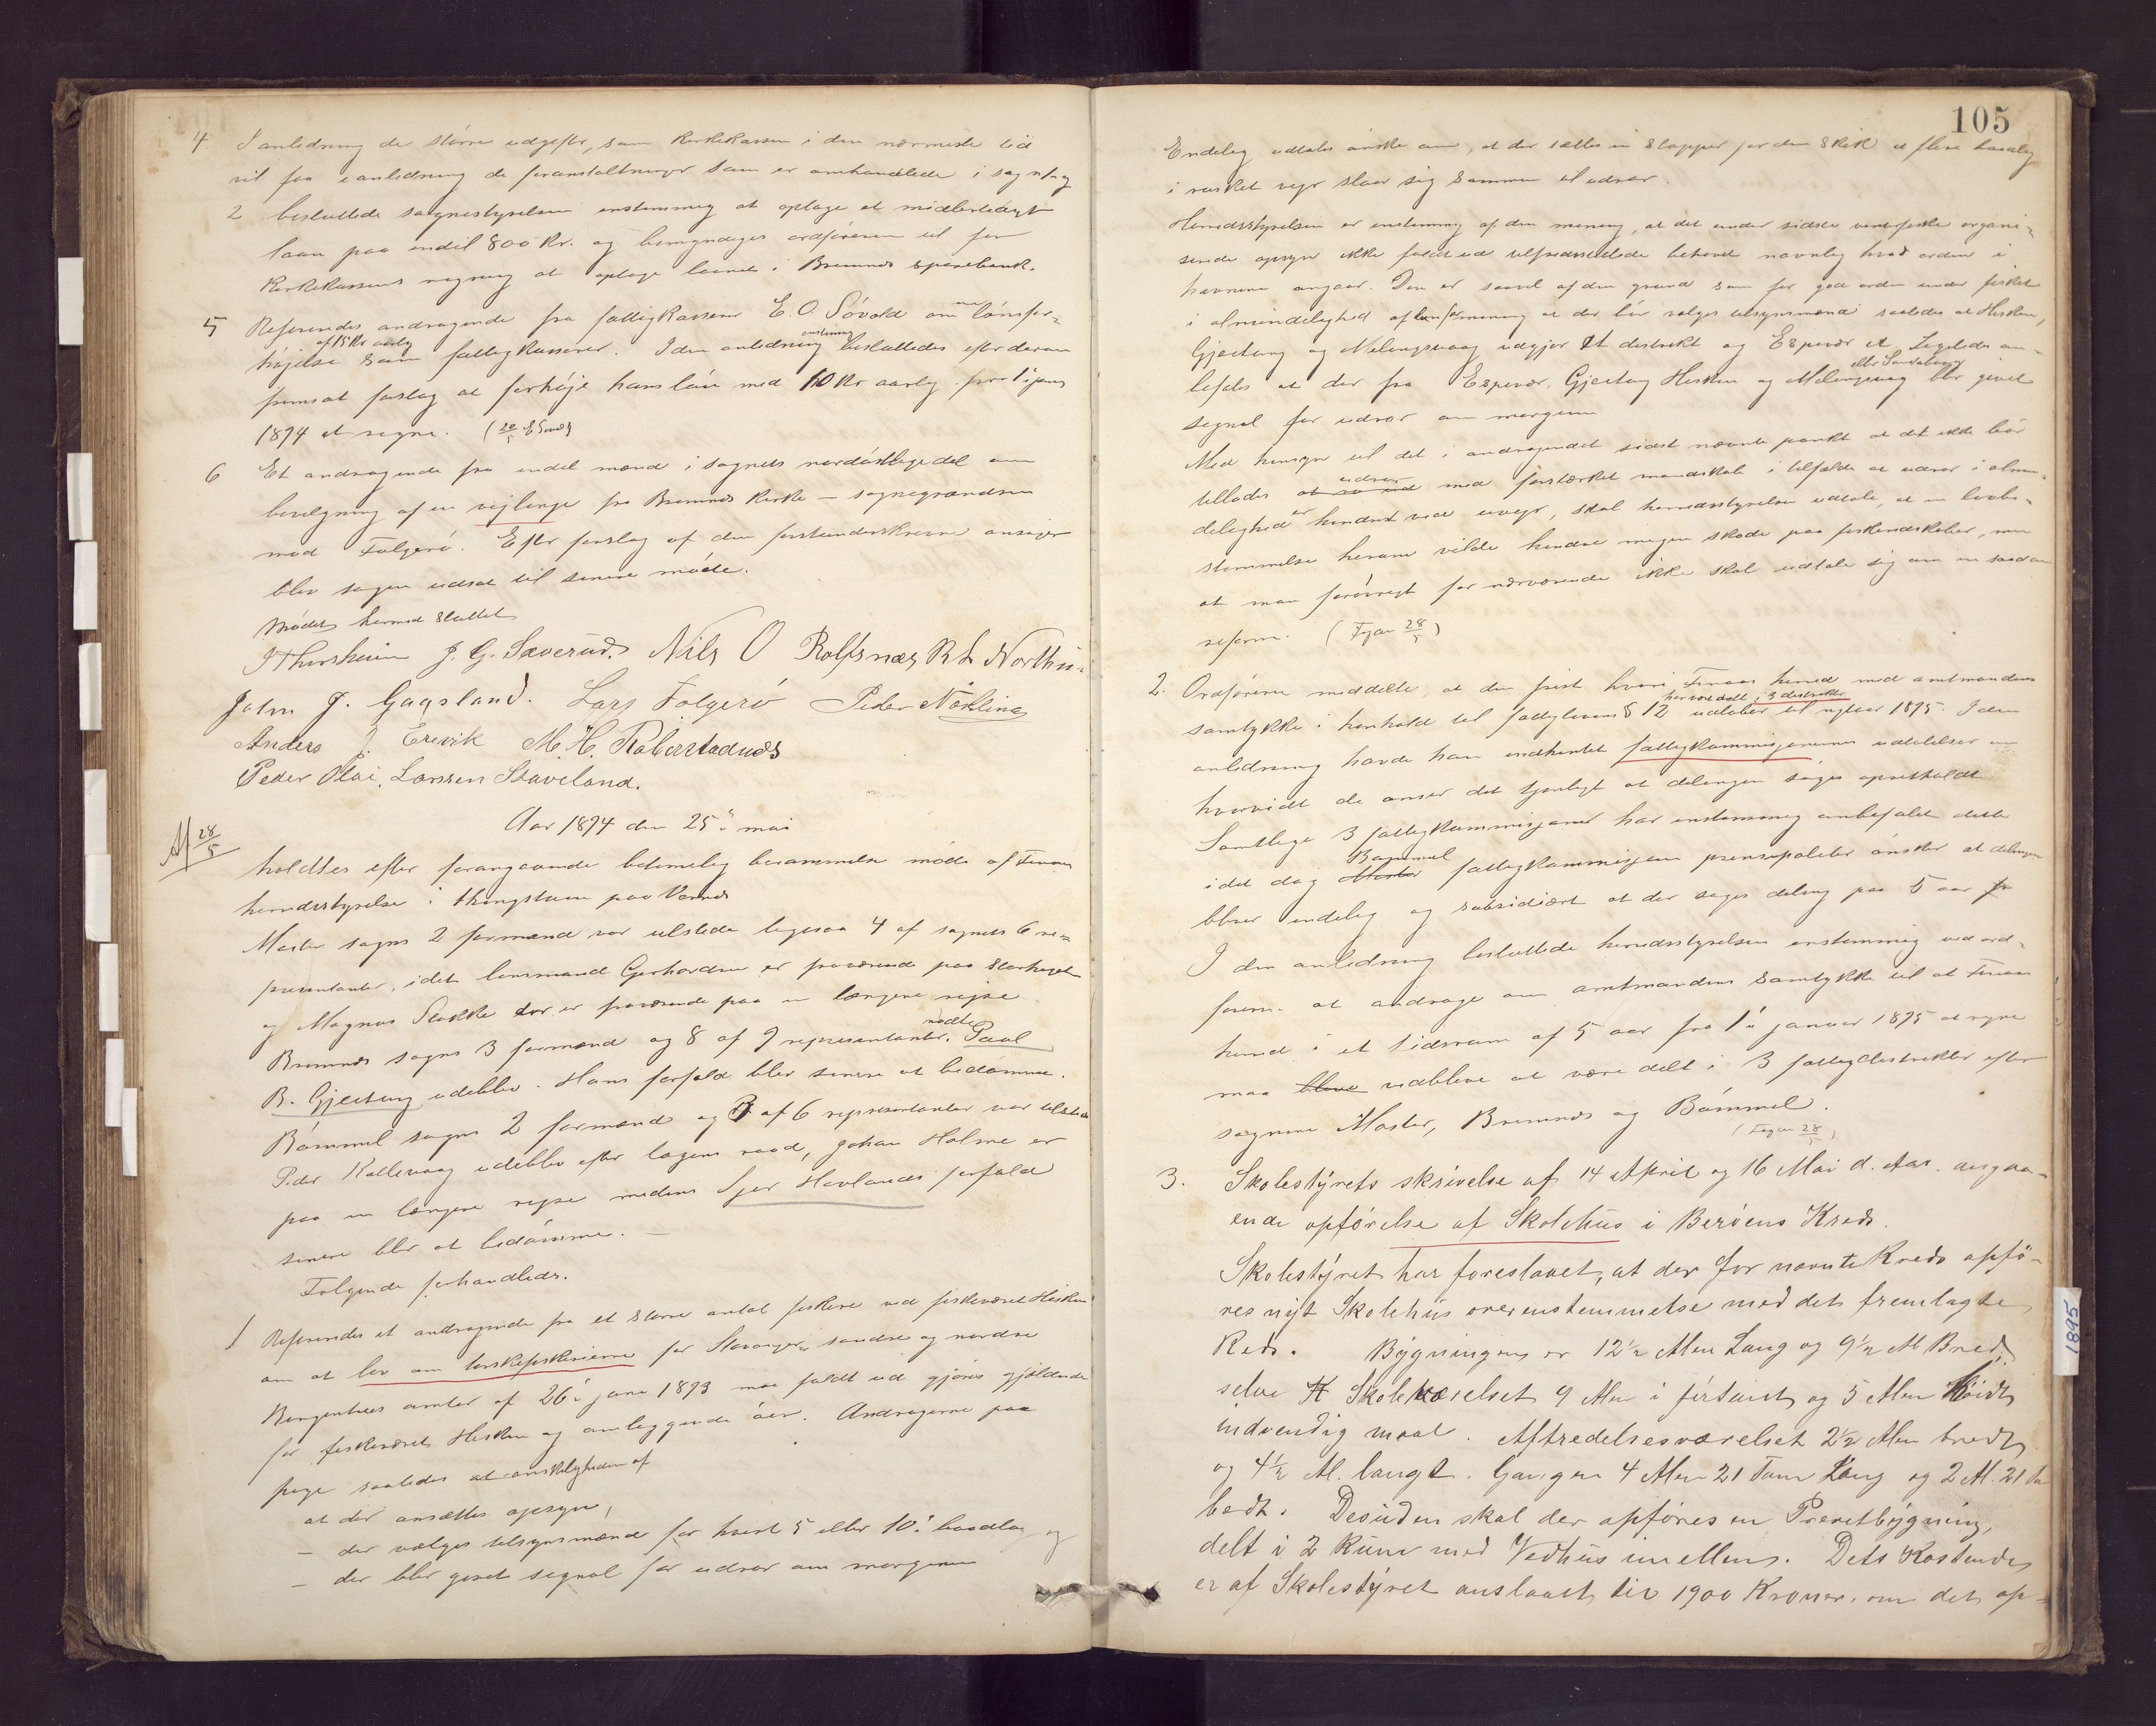 4. I anledning de større udgifter, som kirkekassen i den nærmeste tid
vil faa i anledning de foranstaltninger som er omhandlede i sag 1 og
2 besluttede sognestyrelsen enstemmig at optage et midlertidigt
laan paa indtil 800 Kr. og bemyndiges ordføreren til for
Kirkekassens regning at optage laanet i Bremnes sparebank.
5 Refereredes andragende fra fattigkasserer E. O. Søvold om lønsfor-
højelse af 15 Kr aarlig som fattigkasserer. I den anledning enstemmig besluttedes efter derom
fremsat forslag at forhøje hans løn med 10 Kr aarlig fra 1 janr
1894 at regne. (20/5 E Søvold)
6 Et andragende fra endel mænd i sognets nordøstlige del om
bevilgning af en vejlinge fra Bremnes kirke – sognegrændsen
mod Folgerø. Efter forslag af den forstunderskrevne ansøger
blev sagen udsat til senere møde.
Mødet hermed sluttet
J Thorsheim J. G. Sæverud. Nils O Rolfsnæs R L Northu-
John J. Gaasland. Lars Folgerø Peder Nøkling
Anders J. Erevik M. H. Robarstadnæs
Peder Olai. Larssen Staveland.
Af 28/5
Aar 1894 den 25. mai
holdtes efter forangaaende betimelig berammelse møde af Finaas
herredsstyrelse i thingstuen paa Vernes
Moster sogns 2 formænd var tilstede ligesaa 4 af sognets 6 re-
præsentanter, idet lensmand Gerhardsen er fraværende paa storthinget
og Magnus Stokke der er fraværende paa en længere rejse
Bremnes sogns 3 formænd og 8 af 9 representanter. mødte Paul
B. Gjeitung udeblev. Hans forfald blev senere at bedømme.
Bømmel sogns 2 formænd og 3 af 6 representanter var tilstede
Peder Kallevaag udeblev efter lægens raad, Johan Holme er
paa en længere rejse medens Sjur Hovlands forfald
senere blir at bedømme. –
Følgende forhandledes.
1 Refereredes et andragende fra et større antal fiskere ved fiskeværet Hisken
om at lov om torskefiskerierne for Stavanger, søndre og nordre
Bergenhus amter af 26. juni 1893 maa fuldt ud gjøres gjældende
for fiskeværet Hisken og omliggende øer. Andragerne paa
pege saaledes at ønskeligheden af
at der ansættes opsyn,
– der vælges tilsynsmænd for hvert 5 eller 10. baadlag og
– der blir givet signal for udror om morgenen
105
Endelig udtales ønske om, at der sættes en stopper for den skik at flere baadlag
i rusket vejr slaar sig sammen at udror.
Herredsstyrelsen er enstemmig af den mening, at det under sidste vinterfiske organi-
serede opsyn ikke fuldt ud tilfredsstillede behovet navnlig hvad orden i
havnene angaar. Den er saavel af den grund som for god orden under fisket
i almindelighed af den formening at der bør vælges tilsynsmænd saaledes at Hisken,
Gjeitung og Melingsvaag udgjør Et distrikt og Espevær et. Ligeledes an-
befales at der fra Espevær, Gjeitung Hisken og Melingsvaag eller Sandvaag blir givet
signal for udror om morgenen
Med hensyn til det i andragendet sidst nævnte punkt at det ikke bør
tillades udror med forstærket mandskab i tilfælde at udror i almin-
delighed er hindret ved uvejr, skal herredsstyrelsen udtale, at en lovbe-
stemmelse herom vilde hindre megen skade paa fiskeredskaber, men
at man forøvrigt for nærværende ikke skal udtale sig om en saadan
reform. (Fgav 28/5)
2. Ordføreren meddelte, at den frist hvori Finaas herred med amtmandens
samtykke i henhold til fattiglovens § 12 har været delt i 3 distrikter udløber til nytaar 1895. I den
anledning havde han indhentet fattigkommisjonernes udtalelser om
hvorvidt de anser det tjenligt at delingen søges opretholdt
Samtlige 3 fattigkommisjoner har enstemmig anbefalet dette
idet dog Moster Bømmel fattigkommisjon prinsipaliter ønsker at delingen
bliver endelig og subsidiært at der søges deling paa 5 aar fr
I den anledning besluttede herredsstyrelsen enstemmig ved ord-
føreren at andrage om amtmandens samtykke til at Finaas
herred i et tidsrum af 5 aar fra 1ste januar 1895 at regne
maa blive vedblive at være delt i 3 fattigdistrikter efter
sognene Moster, Bremnes og Bømmel.
(Fgav 28/5)
3. Skolestyrets skrivelse af 14 April og 16 Mai d. Aar. angaa-
ende opførelse af Skolehus i Berøens Kreds.
Skolestyret har foreslaaet, at der for nævnte Kreds opfø-
res nyt Skolehus overensstemmelse med det fremlagte
Rids. Bygningen er 12½ Alen Lang og 9½ Al Bred.
selve Skoleværelset 9 Alen i firkant og 5 Alen Høidt
indvendig maal. Aftredelsesværelset 2½ Alen bredt
og 4½ Al. langt. Gangen 4 Alen 21 Tom Lang og 2 Al. 21 To
bredt. Desuden skal der opføres en Prevetbygning,
delt i 2 Rum med Vedhus imellem. Dets Kostende
er af Skolestyret anslaaet til 1900 Kroner. om det op-
1895